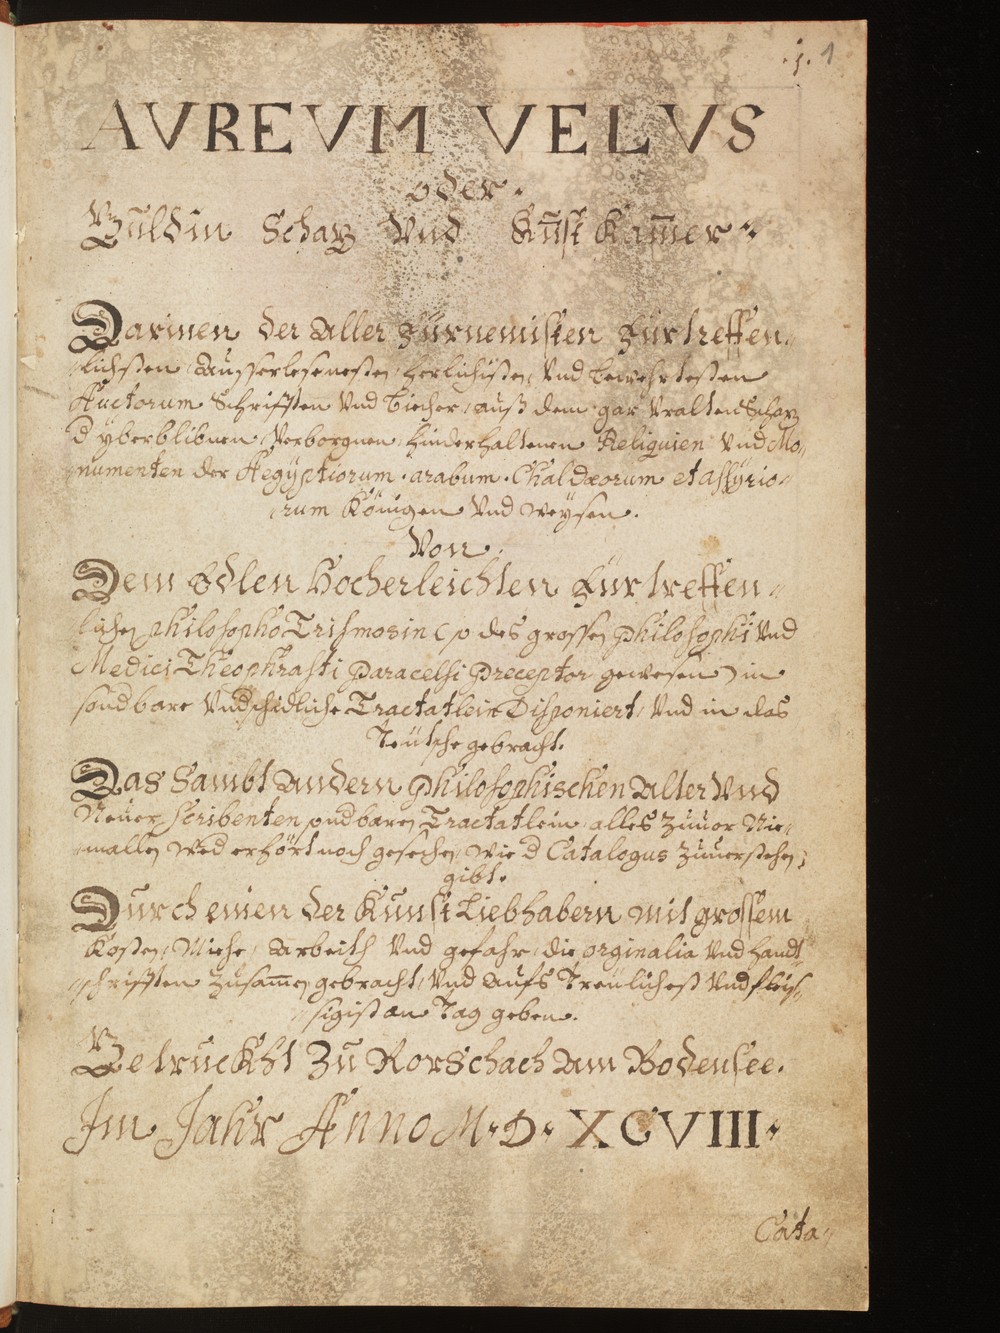 .j. 1
AVREVM VELVS
oder.
Güldin Schaz Vnd Kun̄st Kam̄er.
Darinen der aller Fürnemisten Fürtreffen¬
lichsten Ausserlesenesten, herlichisten, Vnd bewehrtesten
Auctorum Schrifften Vnd biecher, auß dem gar Vralten Schaz
d yberblibnen, Verborgnen, hinderhaltenen Reliquien Vnd Mo¬
numenten der Aegÿptiorum. arabum. Chaldæorum et aßÿrio¬
rum Königen Vnd weÿsen.
Von.
Dem Edlen Hocherleichten Fürtreffen¬
lichen philosopho Trismosin (so des grossen philosophi Vnd
Medici Theophrasti paracelsi preceptor gewesen) in
sondbare Vndschidliche Tractatlein Disponiert, Vnd in das
Teütsche gebracht.
Das Sambt andern philosophischen alter Vnd
Neuer Scribenten sondbaren Tractatlein, alles Zuuor Nie¬
mallen wed erhört noch gesechen, wie d Catalogus Zuuerstehen,
gibt.
Durch einen der Kunst Liebhabern mit grossem
Kosten, Miehe, Arbeith Vnd gefahr, die orginalia Vnd handt
schrifften Zusam̄en gebracht, Vnd aufs Treülichest Vnd fleis¬
sigist an Tag geben.
Getruckht Zu Rorschach am Bodensee.
Im Jahr Anno M. D. XCVIII.
Cata¬